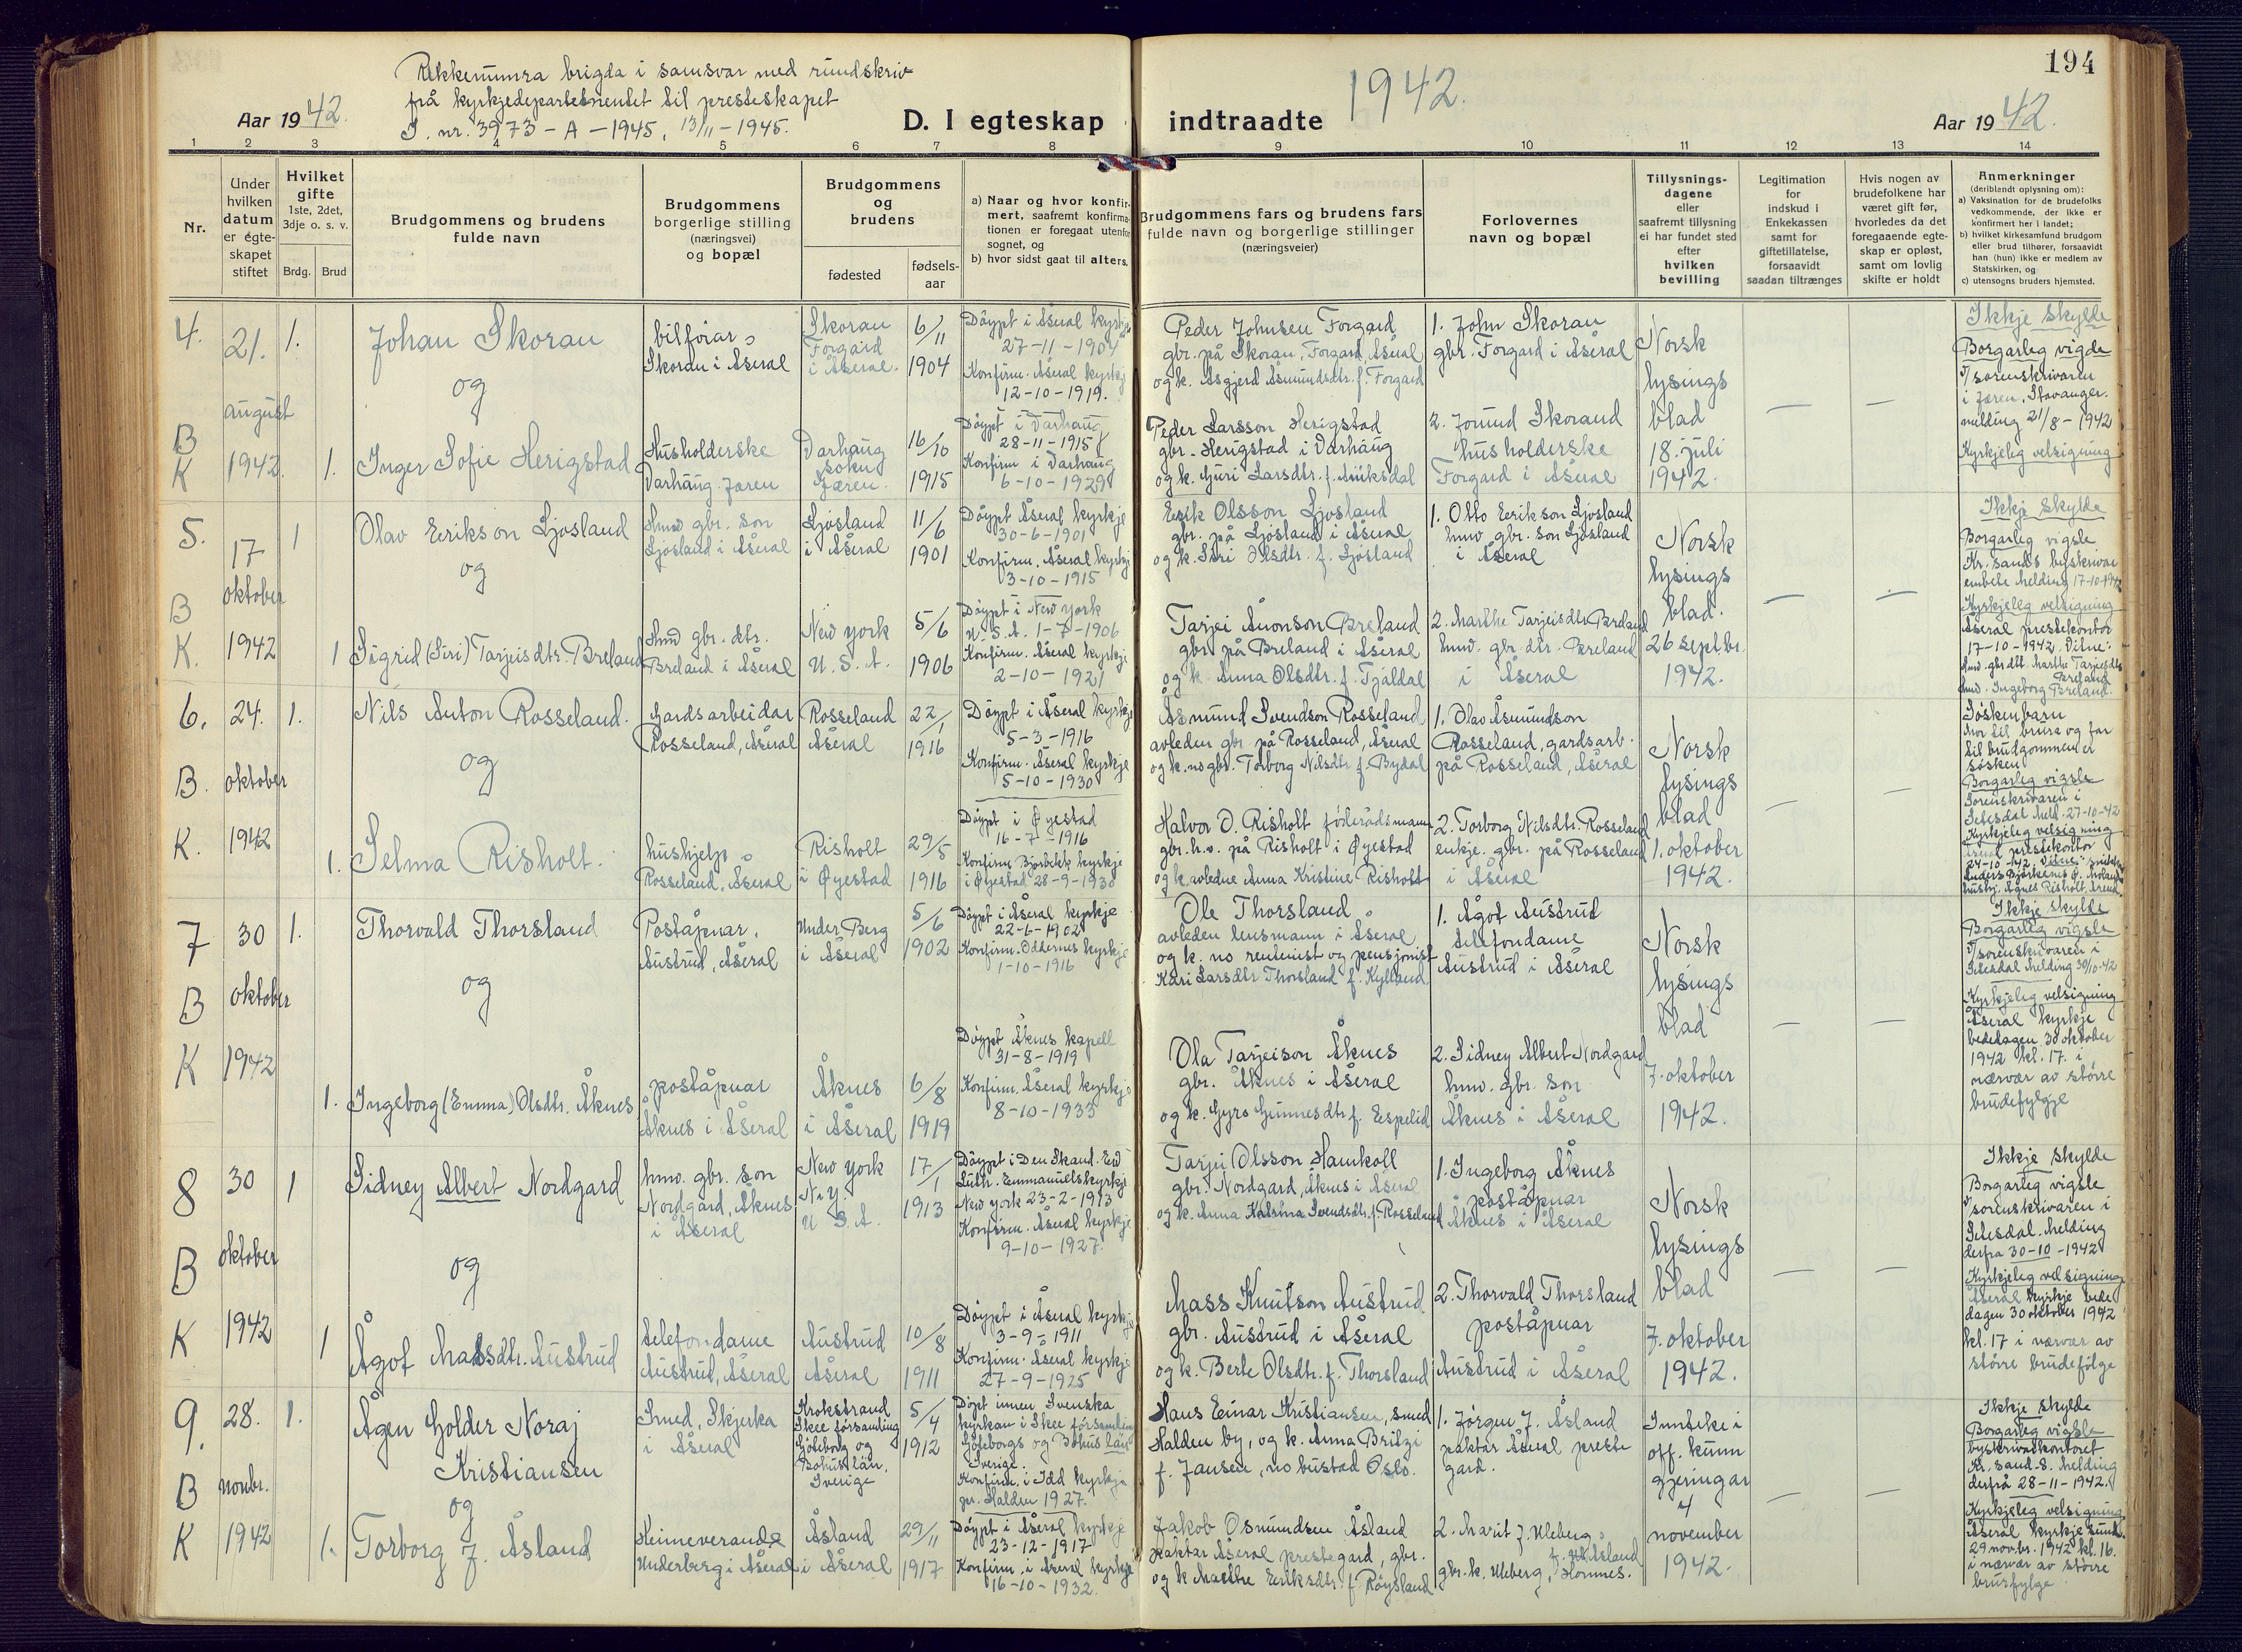 194
Rekkenumra brigda i samsvar med rundskriv
frå kyrkjedepartementet til presteskapet
J. nr. 3973 - A - 1945, 13/11 - 1945.
Aar 1942.
D. I egteskap indtraadte
1942.
Aar 1942.
1 2 3 4 5 6 7 8 9 10 11 12 13 14
Nr.
Under
hvilken
datum
er egte-
skapet
stiftet
Hvilket
gifte
1ste, 2det,
3dje o. s. v.
Brdg. Brud
Brudgommens og brudens
fulde navn
Brudgommens
borgerlige stilling
(næringsvei)
og bopæl
Brudgommens
og
brudens
fødested
fødsels-
aar
a) Naar og hvor konfir-
mert, saafremt konfirma-
tionen er foregaat utenfor
sognet, og
b) hvor sidst gaat til alters.
Brudgommens fars og brudens fars
fulde navn og borgerlige stillinger
(næringsveier)
Forlovernes
navn og bopæl
Tillysnings-
dagene
eller
saafremt tillysning
ei har fundet sted
efter
hvilken
bevilling
Legitimation
for
indskud i
Enkekassen
samt for
giftetillatelse,
forsaavidt
saadan tiltrænges
Hvis nogen av
brudefolkene har
været gift før,
hvorledes da det
foregaaende egte-
skap er opløst,
samt om lovlig
skifte er holdt
Anmerkninger
(deriblandt oplysning om):
a) Vaksination for de brudefolks
vedkommende, der ikke er
konfirmert her i landet;
b) hvilket kirkesamfund brudgom
eller brud tilhører, forsaavidt
han (hun) ikke er medlem av
Statskirken, og
c) utensogns bruders hjemsted.
4.
B
K
21.
august
1942.
1.
Johan Skoran
og
bilføiar,
Skoran i Åseral
Skoran
Forgard
i Åseral.
6/11
1904
Døypt i Åseral kyrkje
27-11-1904
Konfirm. Åseral kyrkje
12-10-1919.
Peder Johnsen Forgard
gbr. på Skoran, Forgard, Åseral
og k. Asgjerd Åsmundsdtr. f. Forgard
1. John Skoran
gbr. Forgard i Åseral
Norsk
lysings
blad
18. juli
1942.
Ikkje skylde
Borgarleg vigde
v/ sorenskrivaren
i Jæren, Stavanger.
melding 21/8 - 1942
Kyrkjeleg velsigning
1.
Inger Sofie Herigstad
Husholderske
Varhaug. Jæren
Varhaug
sokn
Jæren.
16/10
1915
Døypt i Varhaug
28-11-1915
Konfirm i Varhaug
6-10-1929
Peder Larsson Herigstad
gbr. Herigstad i Varhaug
og k. Guri Larsdtr. f. Auksdal
2. Jorund Skorand
husholderske
Forgard i Åseral
5.
B
K.
17
oktober
1942
1
Olav Erikson Ljosland
og
Hmv gbr. son
Ljosland i Åseral
Ljosland
i Åseral
11/6
1901
Døypt Åseral kyrkje
30-6-1901
Konfirm. Åseral kyrkje
3-10-1915
Erik Olsson Ljosland
gbr. på Ljosland i Åseral
og k. Siri Olsdtr. f. Ljosland
1. Otto Erikson Ljosland
hmv gbr. son Ljosland
i Åseral
Norsk
lysings
blad.
26 septbr.
1942.
Ikkje skylde
Borgarleg vigsle
Kr. sands byskrivar
embete melding 17-10-1942
Kyrkjeleg velsigning
Åseral prestekontor
17-10-1942. Vitne:
hmv. gbr dtr. Marthe Tarjeisdtr
Breland
hmv. Ingeborg Breland.
1
Sigrid (Siri) Tarjeisdtr. Breland
Hmv gbr. dtr.
Breland i Åseral
New York
U. S. A.
5/6
1906
Døypt i New York
U. S. A. 1-7-1906
Konfirm. Åseral kyrkje
2-10-1921
Tarjei Ånonson Breland
gbr. på Breland i Åseral
og k. Anna Olsdtr. f. Tjaldal
2. Marthe Tarjeisdtr Breland
hmv. gbr. dtr. Breland
i Åseral
6.
B.
K.
24.
oktober
1942
1.
Nils Anton Rosseland.
og
Gardsarbeidar
Rosseland, Åseral
Rosseland
Åseral
22/1
1916
Døypt i Åseral kyrkje
5-3-1916
Konfirm. Åseral kyrkje
5-10-1930
Åsmund Svendson Rosseland
avleden gbr på Rosseland, Åseral
og k. no gbr. Torborg Nilsdtr f. Bydal
1. Olav Åsmundson
Rosseland, gardsarb.
på Rosseland, Åseral
Norsk
lysings
blad
1. oktober
1942.
Søskenbarn
Mor til brura og far
til brudgommen er
søsken
Borgarleg vigsle
Sorenskrivaren i
Setesdal meld. 27-10-42
Kyrkjeleg velsigning
Åseral prestekontor
24-10-42. Vitne:
hushj. Agnes Risholt, Arend.
1.
Selma Risholt.
hushjelp
Rosseland, Åseral
Risholt
i Øyestad
29/5
1916
Døypt i Øyestad
16-7-1916
Konfirm Bjorbekk kyrkje
i Øyestad 28-9-1930
Halvor O. Risholt føderådsmann
gbr. h.v. på Risholt i Øyestad
og k. avledne Anna Kristine Risholt
2. Torborg Nilsdtr. Rosseland
enkje. gbr. på Rosseland
i Åseral
7
B
K
30
oktober
1942
1.
Thorvald Thorsland
og
Poståpnar,
Austrud, Åseral
Under Berg
i Åseral
5/6
1902
Døypt i Åseral kyrkje
22-6-1902
Konfirm. Oddernes kyrkje
1-10-1916
Ole Thorsland
avleden lensmann i Åseral
og k. no rentenist og pensjonist
Kari Larsdtr Thorsland f. Kylland
1. Ågot Austrud
telefondame
Austrud i Åseral
Norsk
lysings
blad
7. oktober
1942.
Ikkje skylde
Borgarleg vigsle
v/ sorenskrivaren i
Setesdal melding 30/10-42
Kyrkjeleg velsigning
Åseral kyrkje
bededagen, 30 oktober
1942 kl. 17. i
nærvær av større
brudefylgje
1.
Ingeborg (Emma) Olsdtr. Åknes
poståpnar
Åknes i Åseral
Åknes
i Åseral
6/8
1919
Døypt Åknes kapell
31-8-1919
Konfirm. Åseral kyrkje
8-10-1933
Ola Tarjeison Åknes
gbr. Åknes i Åseral
og k. Gyro Gunnesdtr f. Espelid
2. Sidney Albert Nordgard
hmv. gbr. son
Åknes i Åseral
8
B
K
30
oktober
1942
1
Sidney Albert Nordgard
og
hmv. gbr. son
Nordgard, Åknes
i Åseral
New York
N.Y.
U S. A.
17/1
1913
Døypt i Den Skand. Ev.
Luth. Emmanuelskyrkje
New York 23-2-1913
Konfirm. Åseral kyrkje
9-10-1927.
Tarjei Olsson Hamkoll
gbr. Nordgard, Åknes i Åseral
og k. Anna Katrina Svendsdtr. f. Rosseland
1. Ingeborg Åknes
poståpnar
Åknes i Åseral
Norsk
lysings
blad
7. oktober
1942.
Ikkje skylde
Borgarleg vigsle
v/ sorenskrivaren i
Setesdal. Melding
derfra 30-10-1942
Kyrkjeleg velsigning
Åseral kyrkje bede
dagen 30 oktober 1942
kl. 17 i nærvær av
større brudefølge
1
Ågot Madsdtr. Austrud
telefondame
Austrud, Åseral
Austrud
Åseral
10/8
1911
Døypt i Åseral kyrkje
3-9-1911
Konfirm. Åseral kyrkje
27-9-1925
Mass Knutson Austrud
gbr. Austrud i Åseral
og k. Berte Olsdtr. f. Thorsland
2. Thorvald Thorsland
poståpnar
Austrud i Åseral
9.
B
K
28.
novbr.
1942
1.
Ågen Holder Noraj
Kristiansen
og
Smed, Skjerka
i Åseral
Krokstrand
Skee församling
Göteborg og
Bohus län,
Sverige
5/4
1912
Døpt innen Svenska
kyrkan i Skee församling
Göteborgs og Bohus län
Sverige.
Konfirm. i Idd kyrkje
pr. Halden 1927.
Hans Einar Kristiansen, smed
Halden by, og k. Anna Britzi
f. Jansen, no bustad Oslo.
1. Jörgen J. Åsland
paktar Åseral preste
gard.
Innteke i
off. kunn
gjeringar
4
november
1942.
Ikkje skylde
Borgarleg vigsle
byskrivarkontoret
Kr. sand S. Melding
derfrå 28-11-1942.
Kyrkjeleg velsigning
Åseral kyrkje sund.
29 novbr. 1942 kl. 16.
i nærvær av større
brurfylge
1.
Torborg J. Åsland
Heimeverande
Underberg i Åseral
Åsland
i Åseral
29/11
1917
Døypt i Åseral kyrkje
23-12-1917
Konfirm. i Åseral kyrkje
16-10-1932.
Jakob Osmundsen Åsland
paktar Åseral prestegard, gbr.
og k. Marthe Eriksdtr. f. Røysland
2. Marit J. Uleberg
f. Åsland
gbr. k. Uleberg, Hornnes.